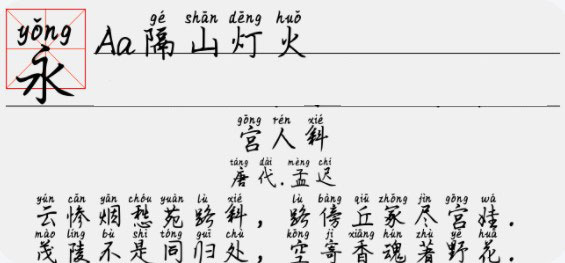 yǒng
永
gé shān dēng huǒ
Aa隔山灯火
gōng rén xié
宫人斜
táng dài mèng chí
唐代.孟迟
yún cǎn yān chóu yuàn lù xié lù bàng qiū zhǒng jìn gōng wá
云惨烟愁苑路斜，路傍丘冢尽宫娃.
mào líng bù shì tóng guī chù kōng jì xiāng hún zhù yě huā
茂陵不是同归处，空寄香魂著野花.